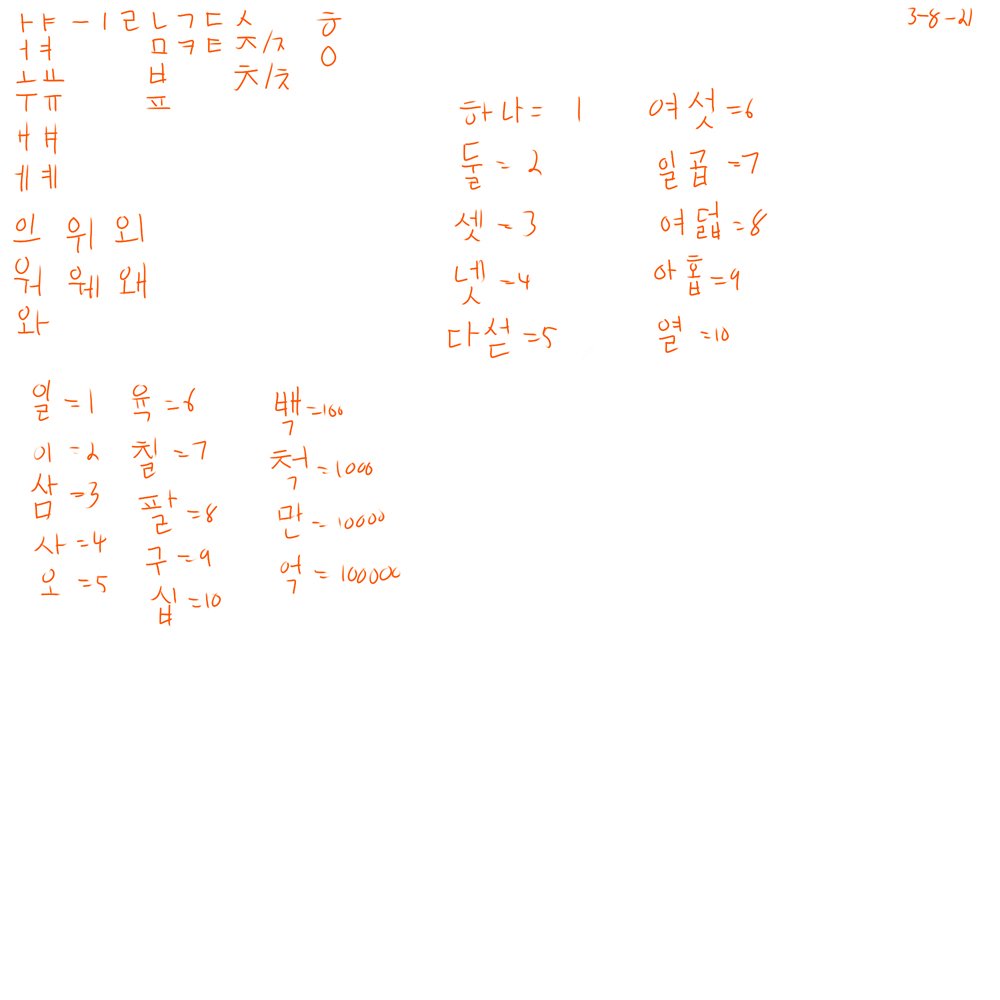 3-8-21
ㅏㅑㅡㅣㄹㄴㄱㄷㅅ ㅎ
ㅓㅕ ㅁㅋㅌㅈ/ㅈ ㅇ
ㅗㅛ ㅂ ㅊ/ㅊ
ㅜㅠ ㅍ
ㅐㅒ
ㅔㅖ
의 위 외
워 웨 왜
와
하나= 1
둘=2
셋=3
넷=4
다섣=5
여섯=6
일곱=7
여덟=8
아홉=9
열=10
일=1
이=2
삼=3
사=4
오=5
육=6
칠=7
팔=8
구=9
십=10
백=100
척=1000
만=10000
억=100000